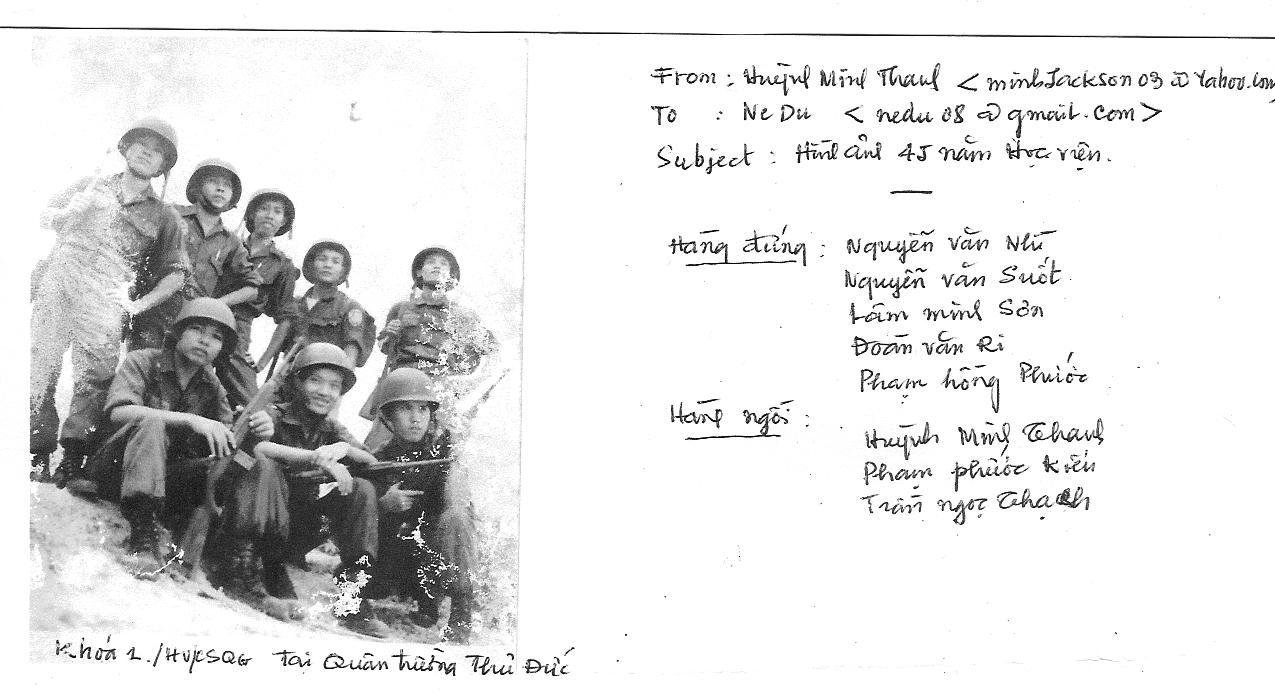 From : Huỳnh Minh Thanh < minhJackson03@Yahoo.com
To : Ne Du < nedu08@gmail.com >
Subject : Hình ảnh 45 năm Học viện.
Hàng đứng : Nguyễn văn Nhữ
Nguyễn văn Suốt
Lâm minh Sơn
Đoàn văn Ri
Phạm hồng Phước
Hàng ngồi :
Huỳnh Minh Thanh
Phạm phước Kiển
Trần ngọc Thạch
Khóa 1./HVCSQG Tại Quân trường Thủ Đức